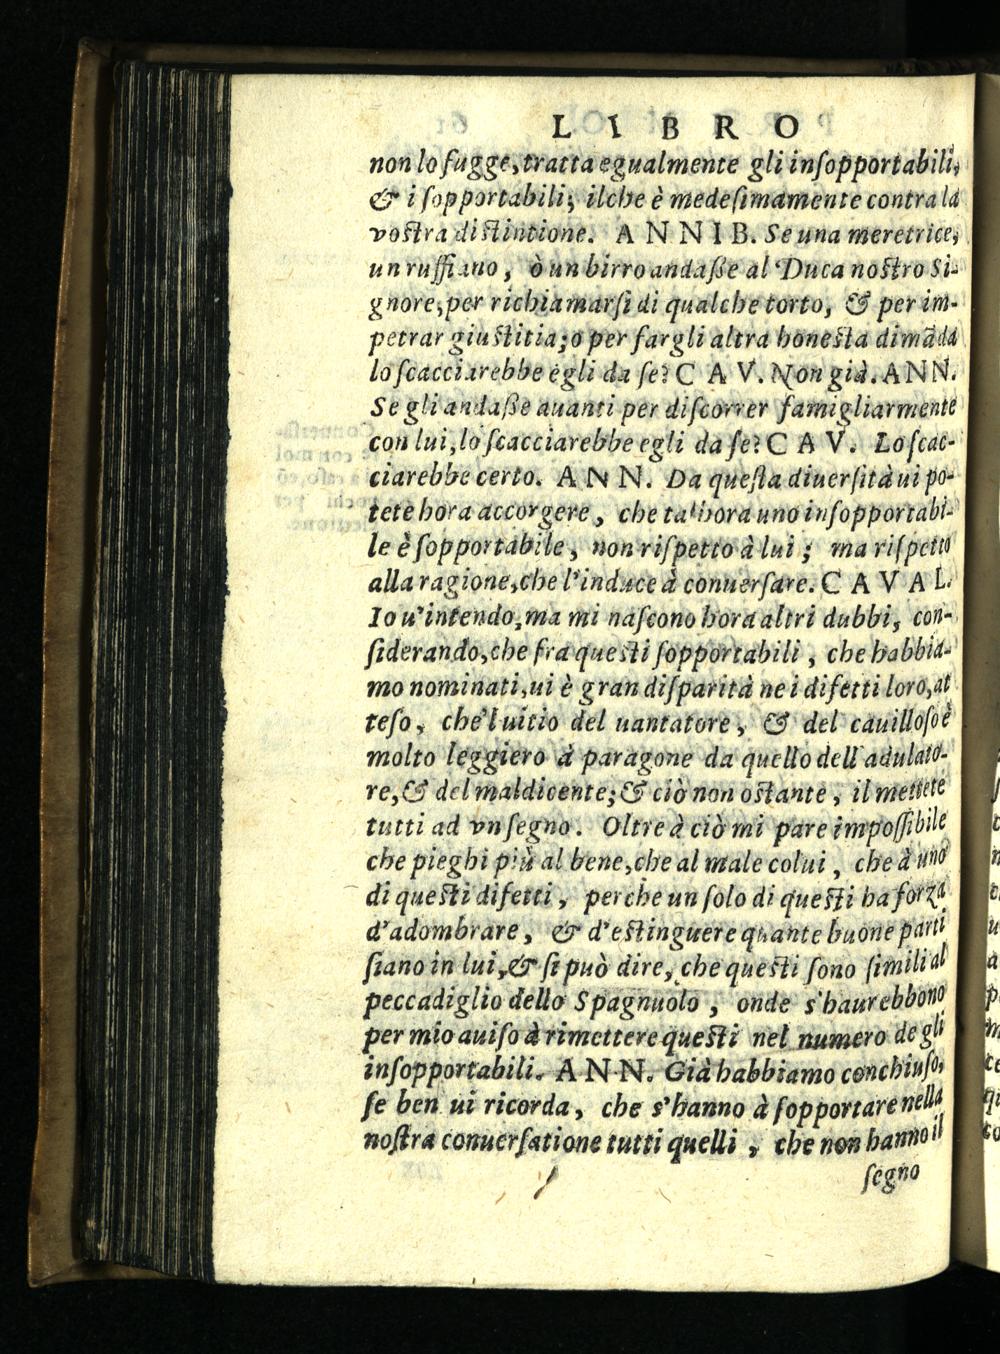 LIBRO
non lo fugge, tratta egualmente gli inſopportabili,
& i ſopportabili; ilche è medeſimamente contra la
voſtra diſtintione. ANNIB. Se una meretrice,
un ruffiano, ò un birro andaſſe al Duca noſtro Si-
gnore, per richiamarſi di qualche torto, & per im-
petrar giuſtitia; o per fargli altra honeſta dimāda
lo ſcacciarebbe egli da ſe? CAV. Non già. ANN.
Se gli andaſſe auanti per diſcorrer famigliarmente
con lui, lo ſcacciarebbe egli da ſe? CAV. Lo ſcac-
ciarebbe certo. ANN. Da queſta diuerſità ui po-
tete hora accorgere, che tal'hora uno inſopportabi-
le è ſopportabile, non riſpetto à lui; ma riſpetto
alla ragione, che l'induce à conuerſare. CAVAL.
Io u'intendo, ma mi naſcono hora altri dubbi, con-
ſiderando, che fra queſti ſopportabili, che habbia-
mo nominati, ui è gran diſparità ne i difetti loro, at
teſo, che'l uitio del uantatore, & del cauilloſo è
molto leggiero à paragone da quello dell'adulato-
re, & del maldicente; & ciò non oſtante, il mettete
tutti ad vn ſegno. Oltre à ciò mi pare impoſſibile
che pieghi più al bene, che al male colui, che à uno
di queſti difetti, perche un ſolo di queſti ha forza
d'adombrare, & d'eſtinguere quante buone parti
ſiano in lui, & ſi può dire, che queſti ſono ſimili al
peccadiglio dello Spagnuolo, onde s'haurebbono
per mio auiſo à rimettere queſti nel numero de gli
inſopportabili. ANN. Già habbiamo conchiuſo,
ſe ben ui ricorda, che s'hanno à ſopportare nella
noſtra conuerſatione tutti quelli, che non hanno il
ſegno